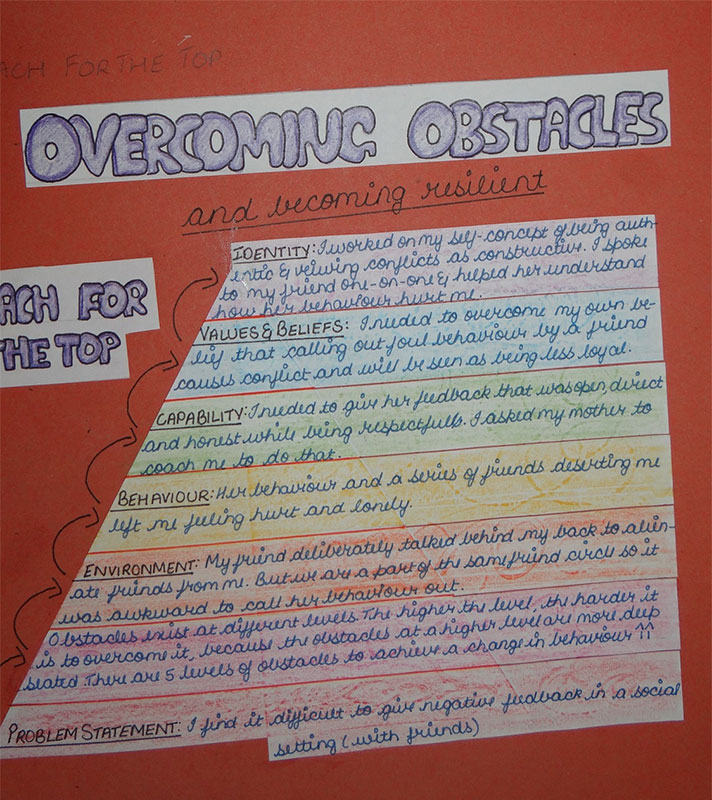 ACH FOR THE TOP
OVERCOMING OBSTACLES
and becoming resilient
ACH FOR
THE TOP
IDENTITY: I worked on my self-concept of being auth-
entic & veiwing conflicts as constructive. I spoke
to my friend one-on-one & helped her understand
how her behaviour hurt me.
VALUES & BELIEFS: I needed to overcome my own be-
lief that calling out foul behaviour by a friend
causes conflict and will be seen as being less loyal.
CAPABILITY: I needed to give her feedback that was open, direct
and honest while being respectfull. I asked my mother to
coach me to do that.
BEHAVIOUR: Her behaviour and a series of friends deserting me
left me feeling hurt and lonely.
ENVIRONMENT: My friend deliberately talked behind my back to alien-
ate friends from me. But we are a part of the same friend circle so it
was awkward to call her behaviour out.
Obstacles exist at different levels. The higher the level, the harder it
is to overcome it, because the obstacles at a higher level are more deep
seated. There are 5 levels of obstacles to achieve a change in behaviour ↑↑
PROBLEM STATEMENT: I find it difficult to give negative feedback in a social
setting (with friends)